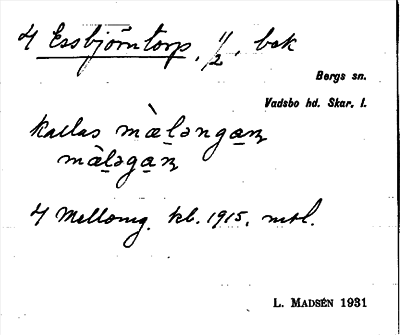 4 Essbjörntorp, 1/2, bok
Bergs sn.
Vadsbo hd. Skar. l.
kallas màl̠ənga̠ɳ
màl̠əga̠ɳ
4 Mellomg. kb. 1915. mtl.
L. MADSÉN 1931